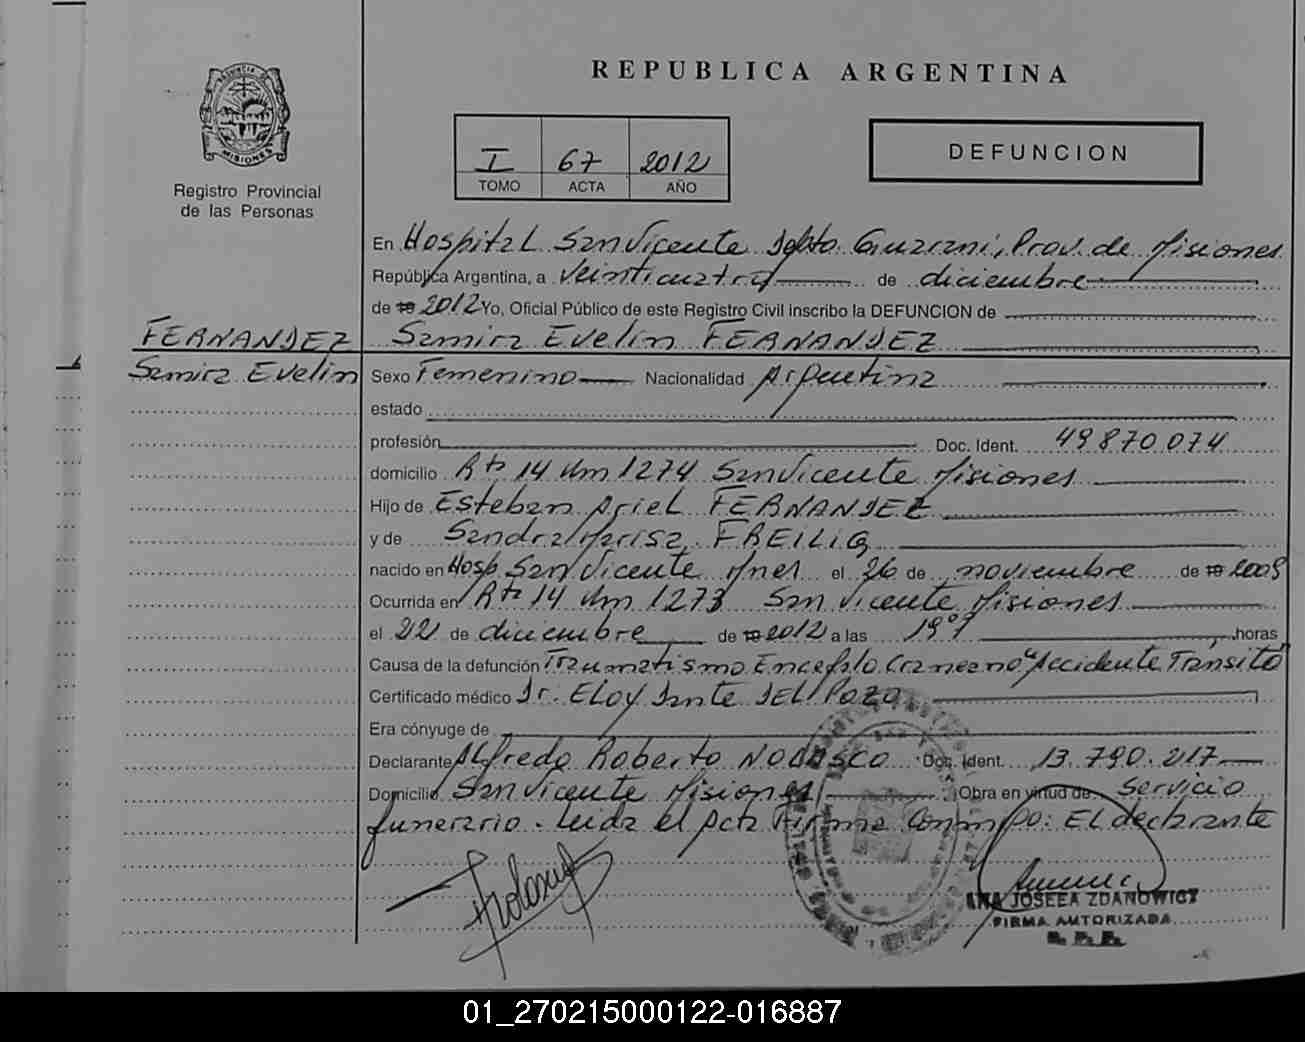 REPUBLICA ARGENTINA
PROVINCIA DE
MISIONES
Registro Provincial
de las Personas
I 67 2012
TOMO ACTA AÑO
DEFUNCION
En Hospital San Vicente Dpto. Guaraní, Prov. de Misiones
República Argentina, a veinticuatro de diciembre
de 19 2012 Yo, Oficial Público de este Registro Civil inscribo la DEFUNCION de
FERNANDEZ Samira Evelin FERNANDEZ
Samira Evelin Sexo Femenino Nacionalidad Argentina
estado
profesión Doc. Ident. 49870074
domicilio Rta 14 Km 1274 San Vicente Misiones
Hijo de Esteban Ariel FERNANDEZ
y de Sandra Marisa FREILIG
nacido en Hosp San Vicente Mnes el 26 de noviembre de 19 2009
Ocurrida en Rta 14 Km 1273 San Vicente Misiones
el 22 de diciembre de 19 2012 a las horas
Causa de la defunción Traumatismo Encefalo Craneano "Accidente Tránsito"
Certificado médico Dr. Eloy Dante DEL POZO
Era cónyuge de
Declarante Alfredo Roberto Doc. Ident. 13.790.217
Domicilio San Vicente Misiones Obra en virtud de Servicio
funerario. Leída el acta Firma Conmigo: El declarante
ANA JOSEFA ZDANOWICZ
FIRMA AUTORIZADA
R. P. P.
01_270215000122-016887